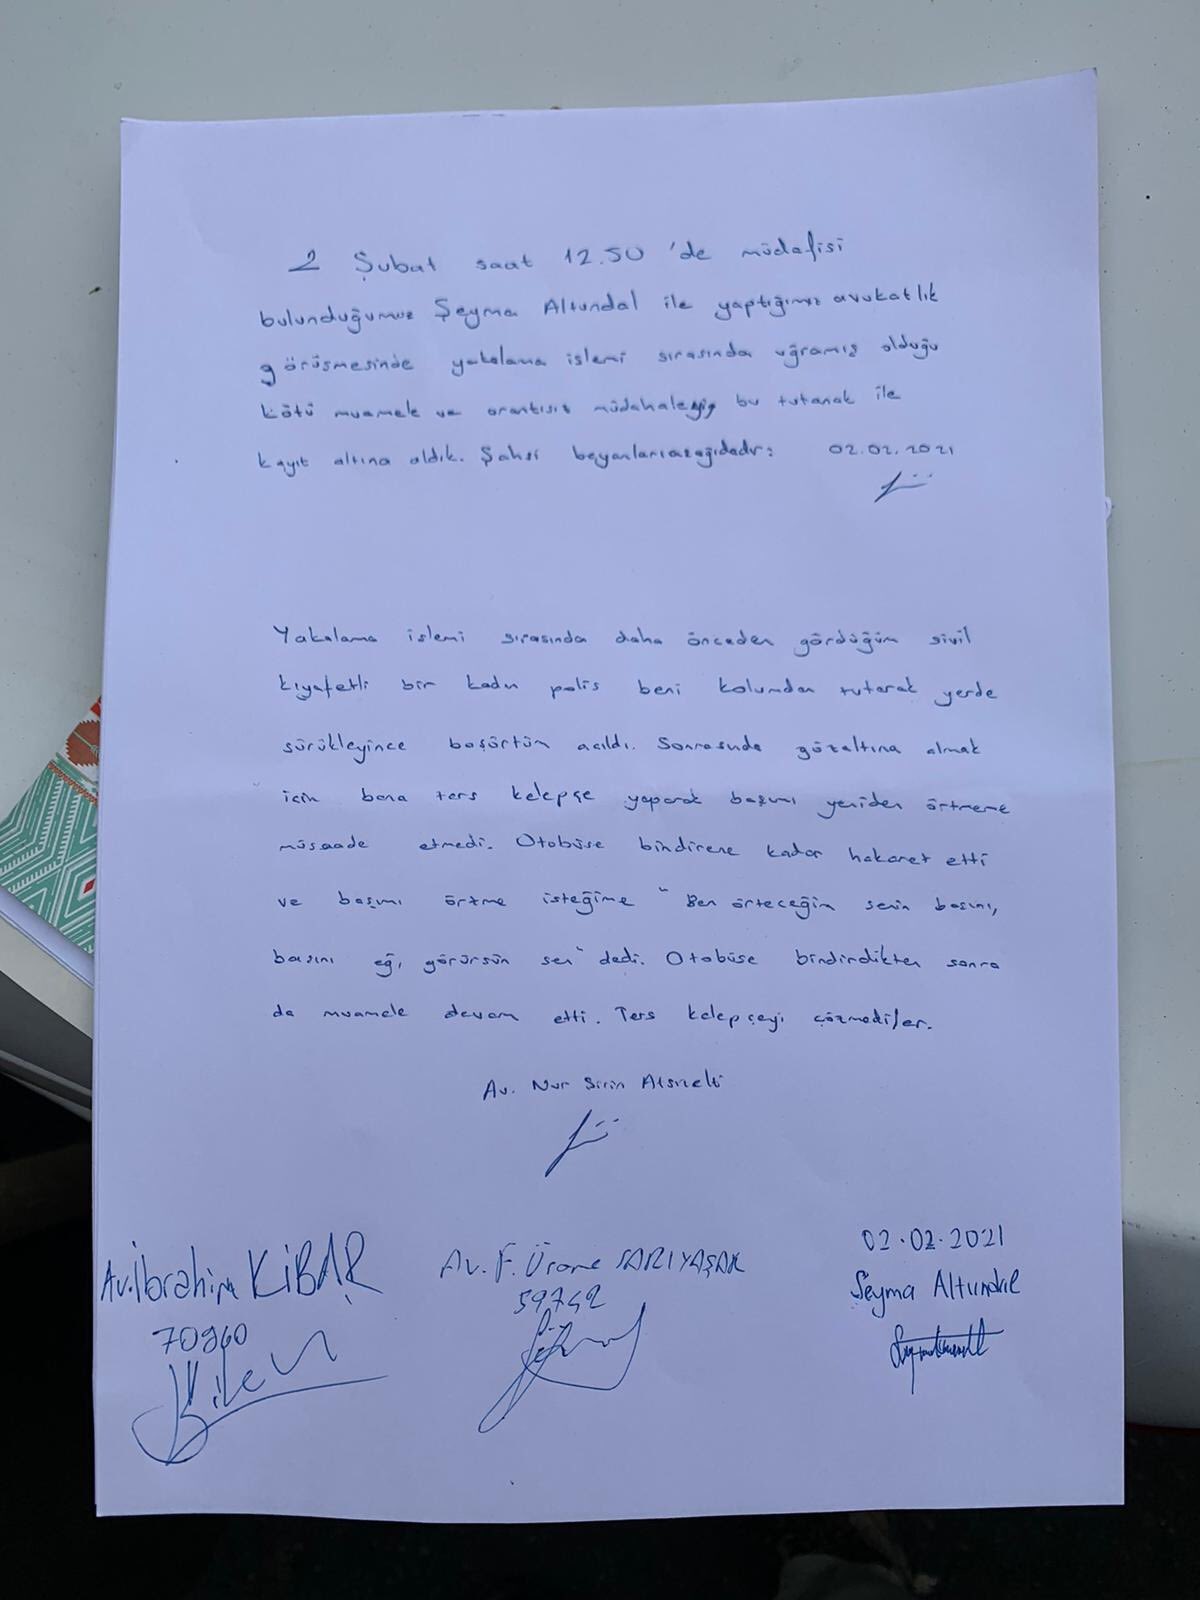 2 Şubat saat 12.50 'de müdafisi
bulunduğumuz Şeyma Altundal ile yaptığımız avukatlık
görüşmesinde yakalama işlemi sırasında uğramış olduğu
kötü muamele ve orantısız müdahaleyi bu tutanak ile
kayıt altına aldık. Şahsi beyanları aşağıdadır: 02.02.2021
Yakalama işlemi sırasında daha önceden gördüğüm sivil
kıyafetli bir kadın polis beni kolumdan tutarak yerde
sürükleyince başörtüm açıldı. Sonrasında gözaltına almak
için bana ters kelepçe yaparak başımı yeniden örtmeme
müsaade etmedi. Otobüse bindirene kadar hakaret etti
ve başımı örtme isteğime "Ben örteceğim senin başını,
başını eğ, görürsün sen" dedi. Otobüse bindirdikten sonra
da muamele devam etti. Ters kelepçeyi çözmediler.
Av. Nur Sirin
02.02.2021
Av. İbrahim KİBAR
Av. F. SARIYAŞAR
Şeyma Altundal
59742